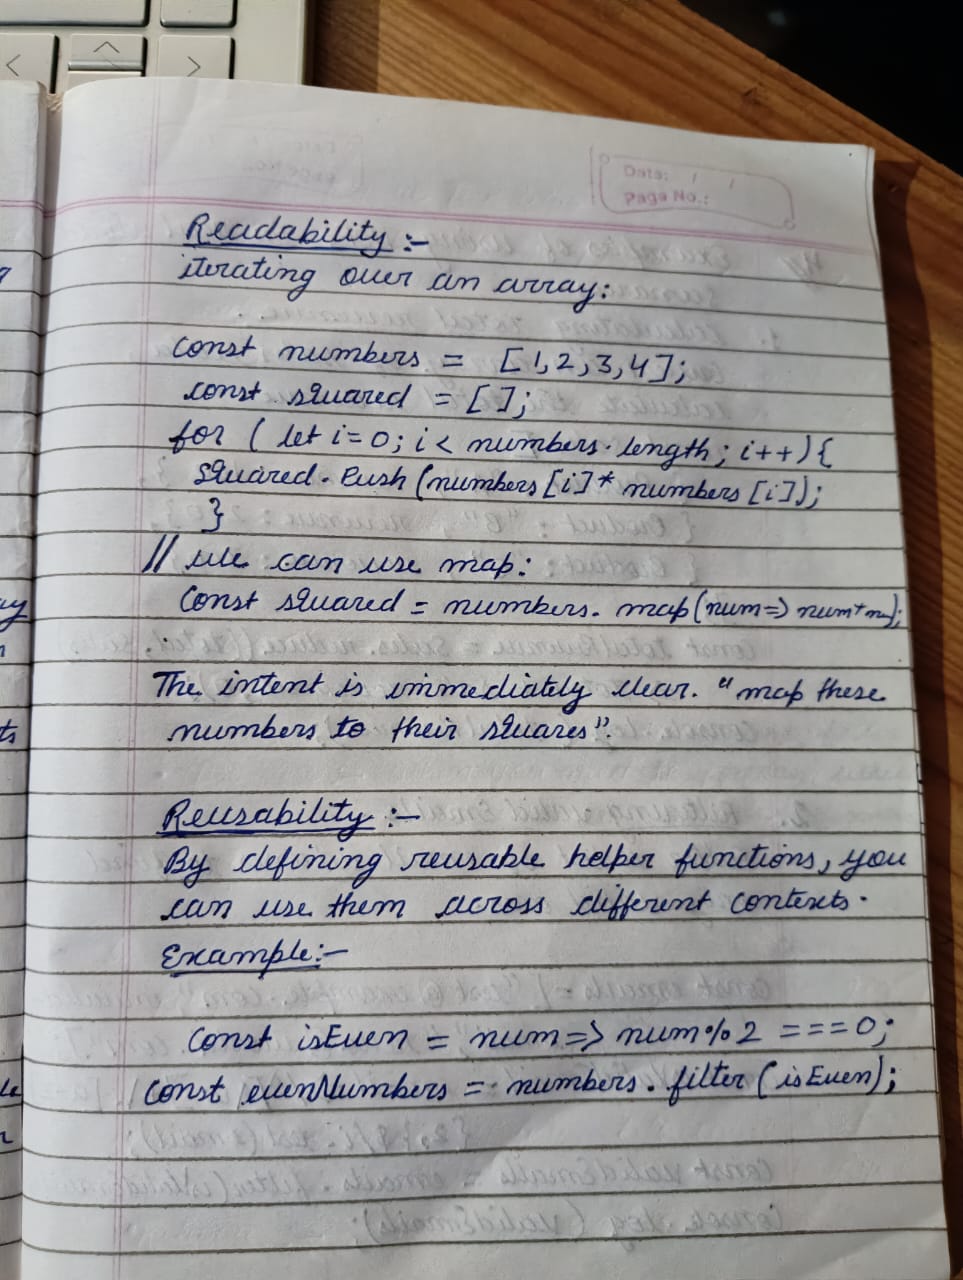 Data: / /
Page No.:
Readability :-
iterating over an array:
const numbers = [1,2,3,4];
const squared = [];
for ( let i=0; i< numbers.length; i++){
squared.push (numbers[i]* numbers [i]);
}
// we can use map:
const squared = numbers. map(num=> num*
The intent is immediately clear. "map these
numbers to their squares".
Reusability :-
By defining reusable helper functions, you
can use them across different contexts.
Example:-
const isEven = num=> num%2 ===0;
const evenNumbers = numbers.filter (isEven);